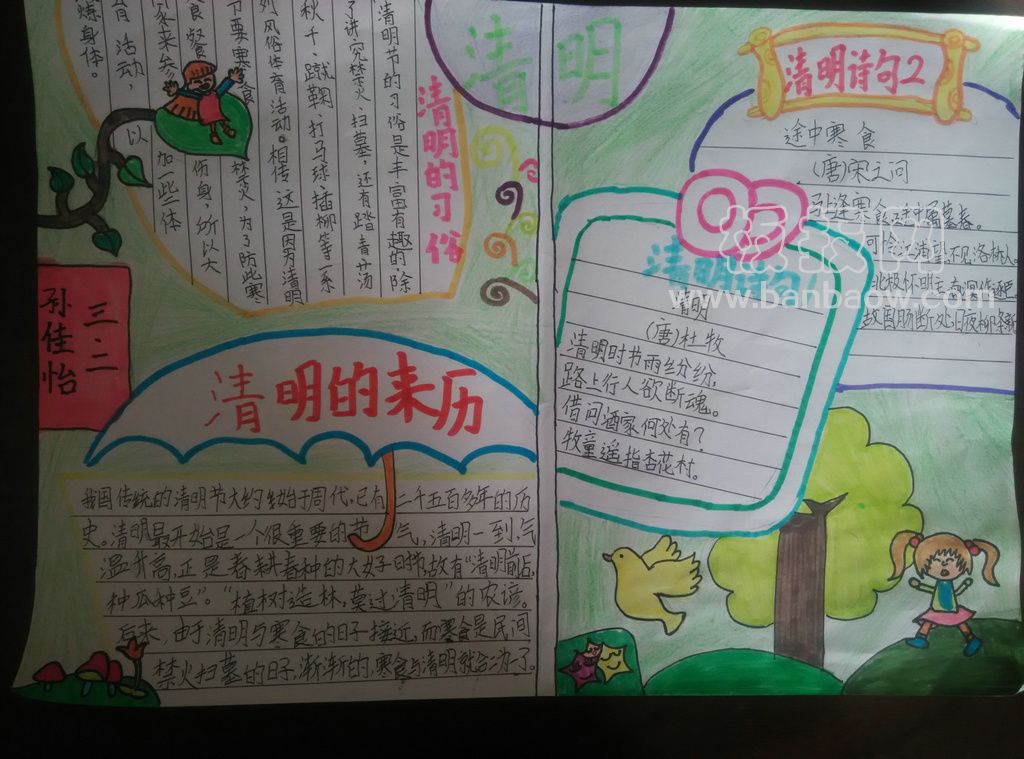 清明
清明的习俗
清明节的习俗是丰富有趣的,除
了讲究禁火、扫墓,还有踏青、荡
秋千、蹴鞠、打马球、插柳等一系
列风俗体育活动。相传这是因为清明
节要寒食禁火,为了防此寒
食餐伤身,所以大
家来参加一些体
育活动,以
炼身体。
三.二
孙佳怡
清明的来历
我国传统的清明节大约始于周代,已有二千五百多年的历
史。清明最开始是一个很重要的节气,清明一到,气
温升高,正是春耕春种的大好日时,故有“清明前后,
种瓜种豆”。“植树造林,莫过清明”的农谚。
后来,由于清明与寒食的日子接近,而寒食是民间
禁火扫墓的日子,渐渐的,寒食与清明就合二为一了。
清明诗句2
途中寒食
(唐)宋之问
马上逢寒食
可怜江浦望,不见洛桥人。
北极怀明主,
故园肠断处,日夜柳条新
清明诗句1
清明
(唐)杜牧
清明时节雨纷纷,
路上行人欲断魂。
借问酒家何处有?
牧童遥指杏花村。
板报网
www.banbaow.com